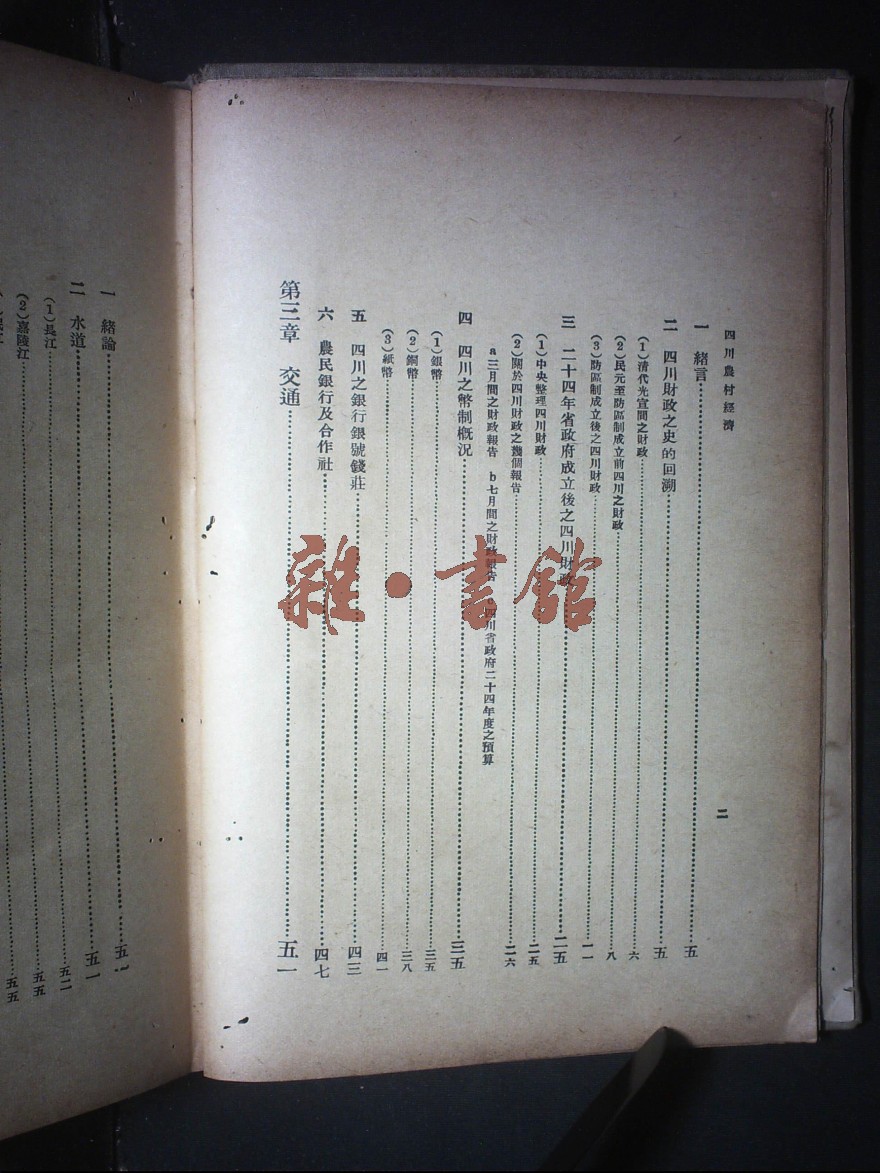 四川農村經濟
二
一 緒言 五
二 四川財政之史的回溯 五
(1)清代光宣間之財政 六
(2)民元至防區制成立前四川之財政 八
(3)防區制成立後之四川財政 一一
三 二十四年省政府成立後之四川財政 二五
(1)中央整理四川財政 二五
(2)關於四川財政之幾個報告 二六
a三月間之財政報告 b七月間之財政報告 川省政府二十四年度之預算
四 四川之幣制槪況 三五
(1)銀幣 三五
(2)銅幣 三八
(3)紙幣 四一
五 四川之銀行銀號錢莊 四三
六 農民銀行及合作社 四七
第三章 交通 五一
一 緒論 五一
二 水道 五一
(1)長江 五二
(2)嘉陵江 五五
五五
雜·書館